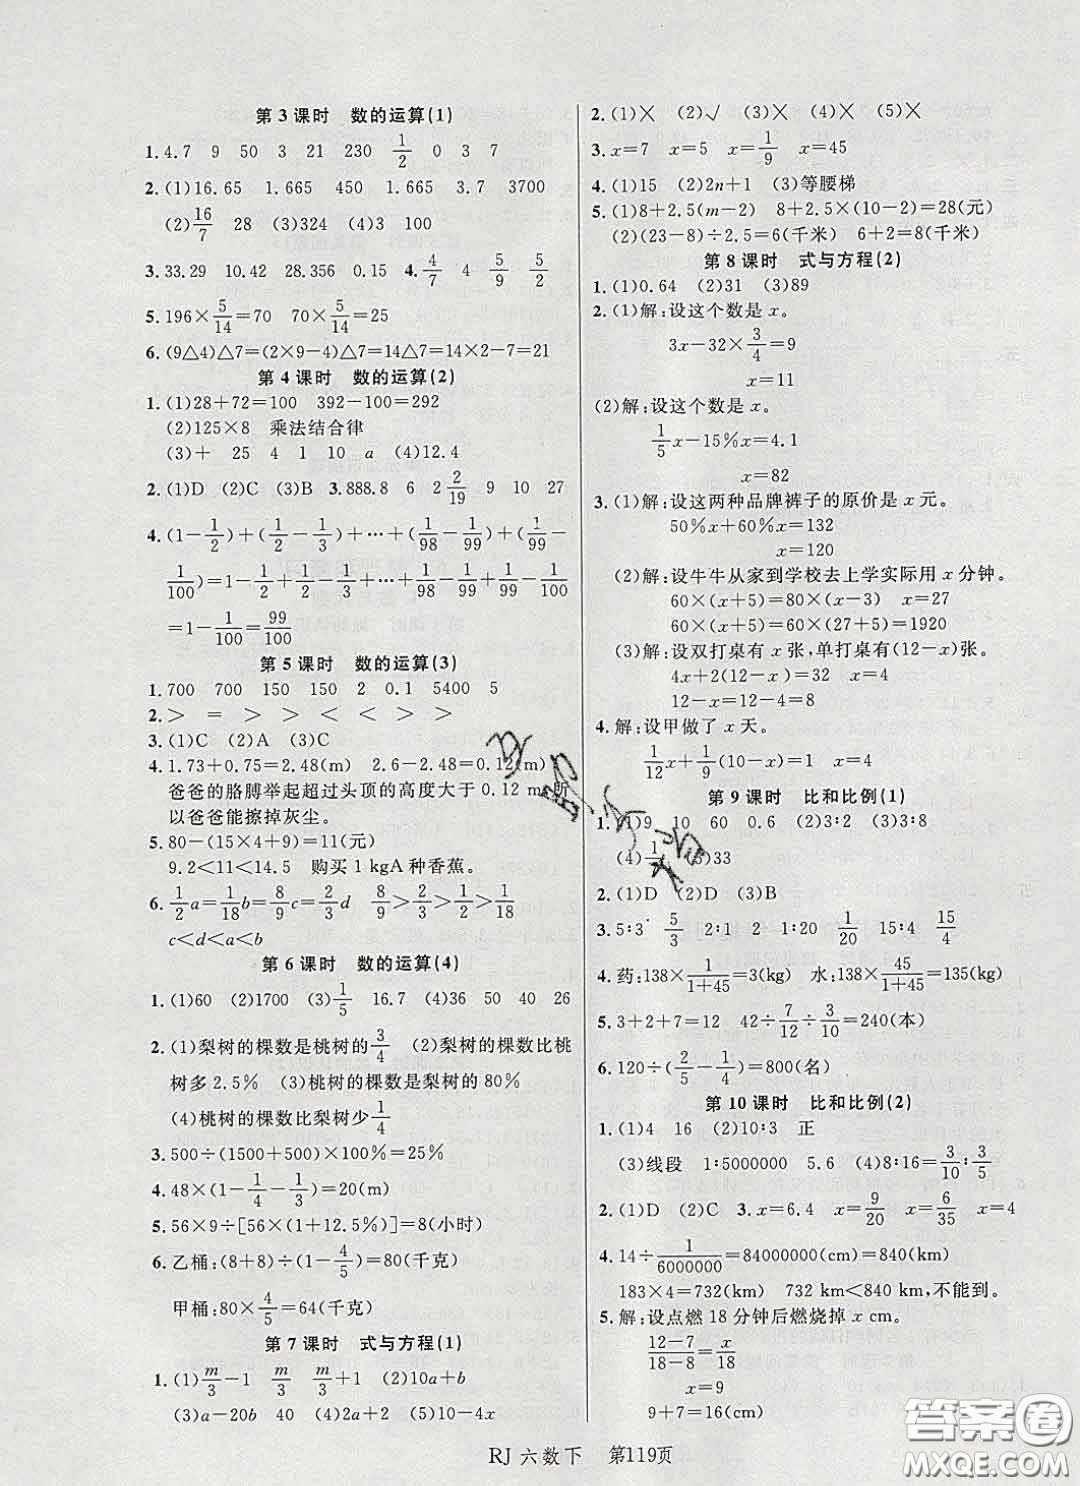 第3课时 数的运算(1)
1. 4.7 9 50 3 21 230 1/2 0 3 7
2. (1)16.65 1.665 450 1.665 3.7 3700
(2)16/7 28 (3)324 (4)3 100
3. 33.29 10.42 28.356 0.15 4. 4/7 4 5/9 5/2
5. 196×5/14=70 70×5/14=25
6. (9△4)△7=(2×9-4)△7=14△7=14×2-7=21
第4课时 数的运算(2)
1. (1)28+72=100 392-100=292
(2)125×8 乘法结合律
(3)+ 25 4 1 10 a (4)12.4
2. (1)D (2)C (3)B 3. 888.8 6 2 2/19 9 10 27
4. (1-1/2)+(1/2-1/3)+…+(1/98-1/99)+(1/99-
1/100)=1-1/2+1/2-1/3+…+1/98-1/99+1/99-1/100
=1-1/100=99/100
第5课时 数的运算(3)
1. 700 700 150 150 2 0.1 5400 5
2. > = > > < < > >
3. (1)C (2)A (3)C
4. 1.73+0.75=2.48(m) 2.6-2.48=0.12(m)
爸爸的胳膊举起超过头顶的高度大于0.12 m,所
以爸爸能擦掉灰尘。
5. 80-(15×4+9)=11(元)
9.2<11<14.5 购买1 kgA种香蕉。
6. 1/2a=1/18b=8/9c=2/3d 8/9>2/3>1/2>1/18
c<d<a<b
第6课时 数的运算(4)
1. (1)60 (2)1700 (3)1/5 16.7 (4)36 50 40 26
2. (1)梨树的棵数是桃树的3/4 (2)梨树的棵数比桃
树多2.5% (3)桃树的棵数是梨树的80%
(4)桃树的棵数比梨树少1/4
3. 500÷(1500+500)×100%=25%
4. 48×(1-1/4-1/3)=20(m)
5. 56×9÷[56×(1+12.5%)]=8(小时)
6. 乙桶:(8+8)÷(1-4/5)=80(千克)
甲桶:80×4/5=64(千克)
第7课时 式与方程(1)
1. (1)m/3-1 m/3 m/3+1 (2)10a+b
(3)a-20b 40 (4)a+2 (5)10-4x
2. (1)× (2)√ (3)× (4)× (5)×
3. x=7 x=5 x=1/9 x=45
4. (1)15 (2)2n+1 (3)等腰梯
5. (1)8+2.5(m-2) 8+2.5×(10-2)=28(元)
(2)(23-8)÷2.5=6(千米) 6+2=8(千米)
第8课时 式与方程(2)
1. (1)0.64 (2)31 (3)89
2. (1)解:设这个数是x。
3x-32×3/4=9
x=11
(2)解:设这个数是x。
1/5x-15%x=4.1
x=82
3. (1)解:设这两种品牌裤子的原价是x元。
50%x+60%x=132
x=120
(2)解:设牛牛从家到学校去上学实际用x分钟。
60×(x+5)=80×(x-3) x=27
60×(x+5)=60×(27+5)=1920
(3)解:设双打桌有x张,单打桌有(12-x)张。
4x+2(12-x)=32 x=4
12-x=12-4=8
4. 解:设甲做了x天。
1/12x+1/9(10-x)=1 x=4
第9课时 比和比例(1)
1. (1)9 10 60 0.6 (2)3∶2 (3)3∶8
(4) (5)33
2. (1)D (2)D (3)B
3. 5∶3 5/3 2∶1 2 1∶20 1/20 15∶4 15/4
4. 药:138×1/(1+45)=3(kg) 水:138×45/(1+45)=135(kg)
5. 3+2+7=12 42÷7/12÷3/10=240(本)
6. 120÷(2/5-1/4)=800(名)
第10课时 比和比例(2)
1. (1)4 16 (2)10∶3 正
(3)线段 1∶5000000 5.6 (4)8∶16=3/10∶3/5
2. (1)D (2)C 3. x=6.4 x=9/20 x=6/35 x=4
4. 14÷1/6000000=84000000(cm)=840(km)
183×4=732(km) 732 km<840 km,不能到。
5. 解:设点燃18分钟后燃烧掉x cm。
(12-7)/(18-8)=x/18
x=9
9+7=16(cm)
RJ 六数下 第119页
答案圈
MXQE.COM